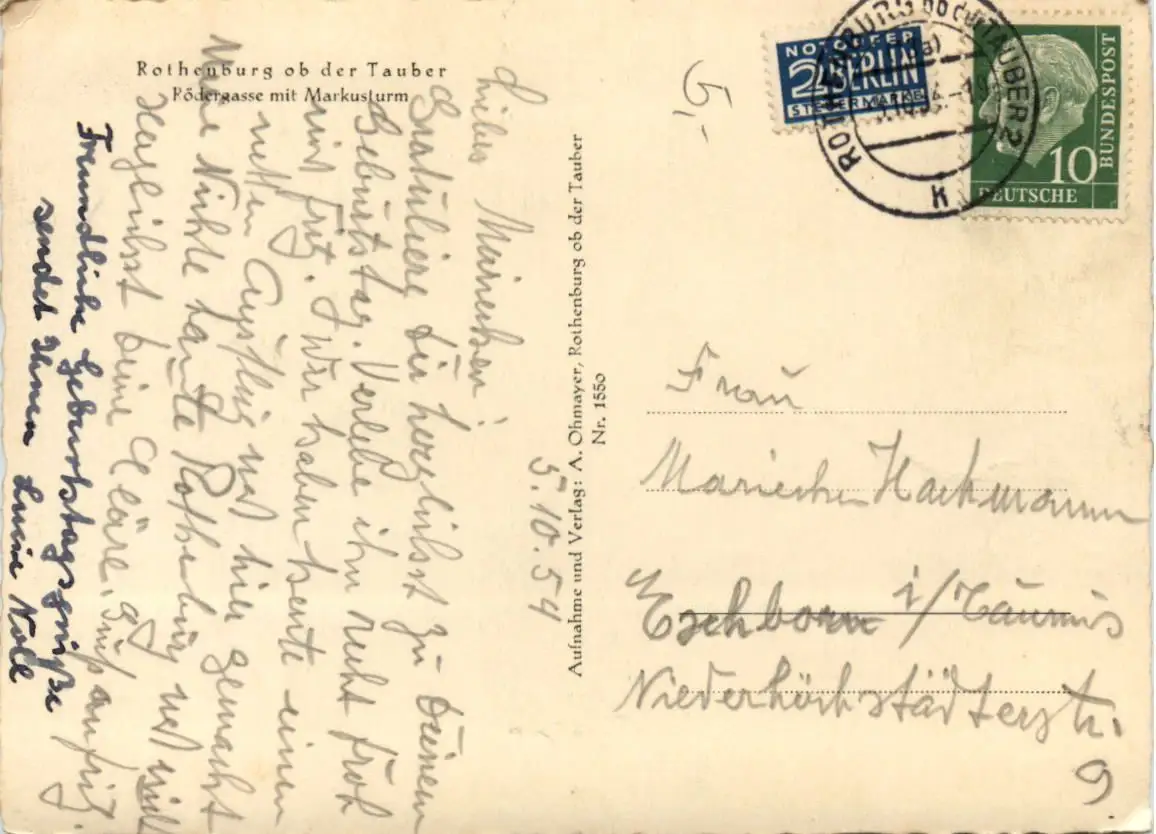 Rothenburg ob der Tauber
Rödergasse mit Markusturm
5.10.54
Liebes Mariechen!
Gratuliere dir herzlichst zu deinem
Geburtstag. Verlebe ihn recht froh
mit Fritz. Wir haben heute einen
netten Ausflug nach hier gemacht
Meine Nichte Rothenburg
herzlichst deine Cläre. Gruß an Fritz.
Freundliche Geburtstagsgrüße
sendet Ihnen Luise Noll
Aufnahme und Verlag: A. Ohmayer, Rothenburg ob der Tauber
Nr. 1550
5,-
NOTOPFER
2 BERLIN
STEUERMARKE
ROTHENBURG ob der TAUBER 2
k
10
DEUTSCHE
BUNDESPOST
Frau
Mariechen Hackmann
Eschborn i/Taunus
Niederhöchstädterstr.
9